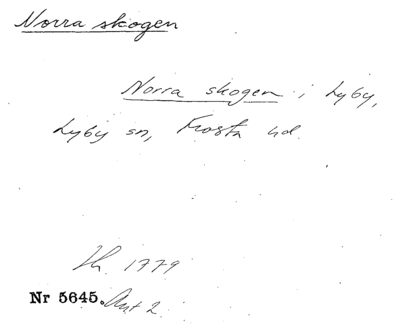 Norra skogen
Norra skogen i Lyby,
Lyby sn, Frosta hd.
1779
Nr 5645. Akt 2.